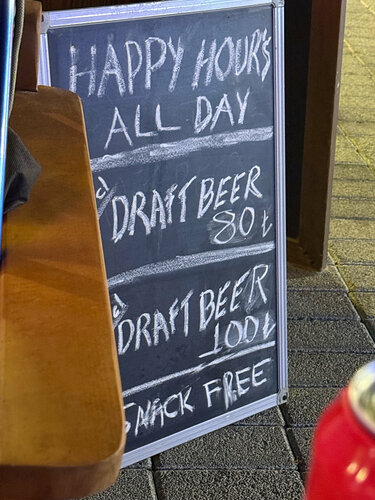 HAPPY HOUR'S
ALL DAY
DRAFT BEER
80₺
DRAFT BEER
100₺
SNACK FREE